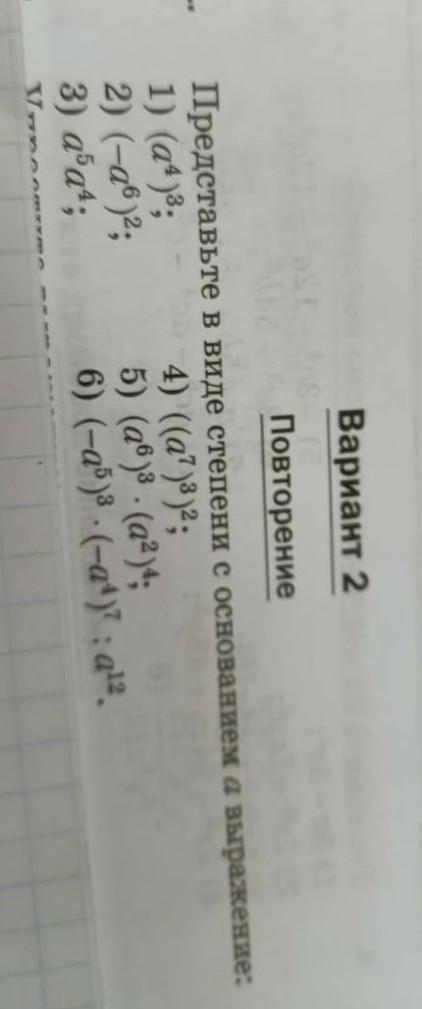 Вариант 2
Повторение
Представьте в виде степени с основанием a выражение:
1) (a⁴)³; 4) ((a⁷)³)²;
2) (−a⁶)²; 5) (a⁶)³ · (a²)⁴;
3) a⁵a⁴; 6) (−a⁵)³ · (−a⁴)⁷ : a¹².